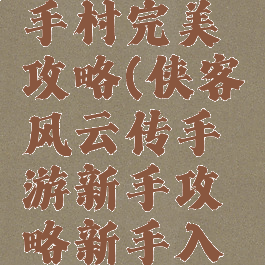 手村完美
攻略(侠客
风云传手
游新手攻
略新手入